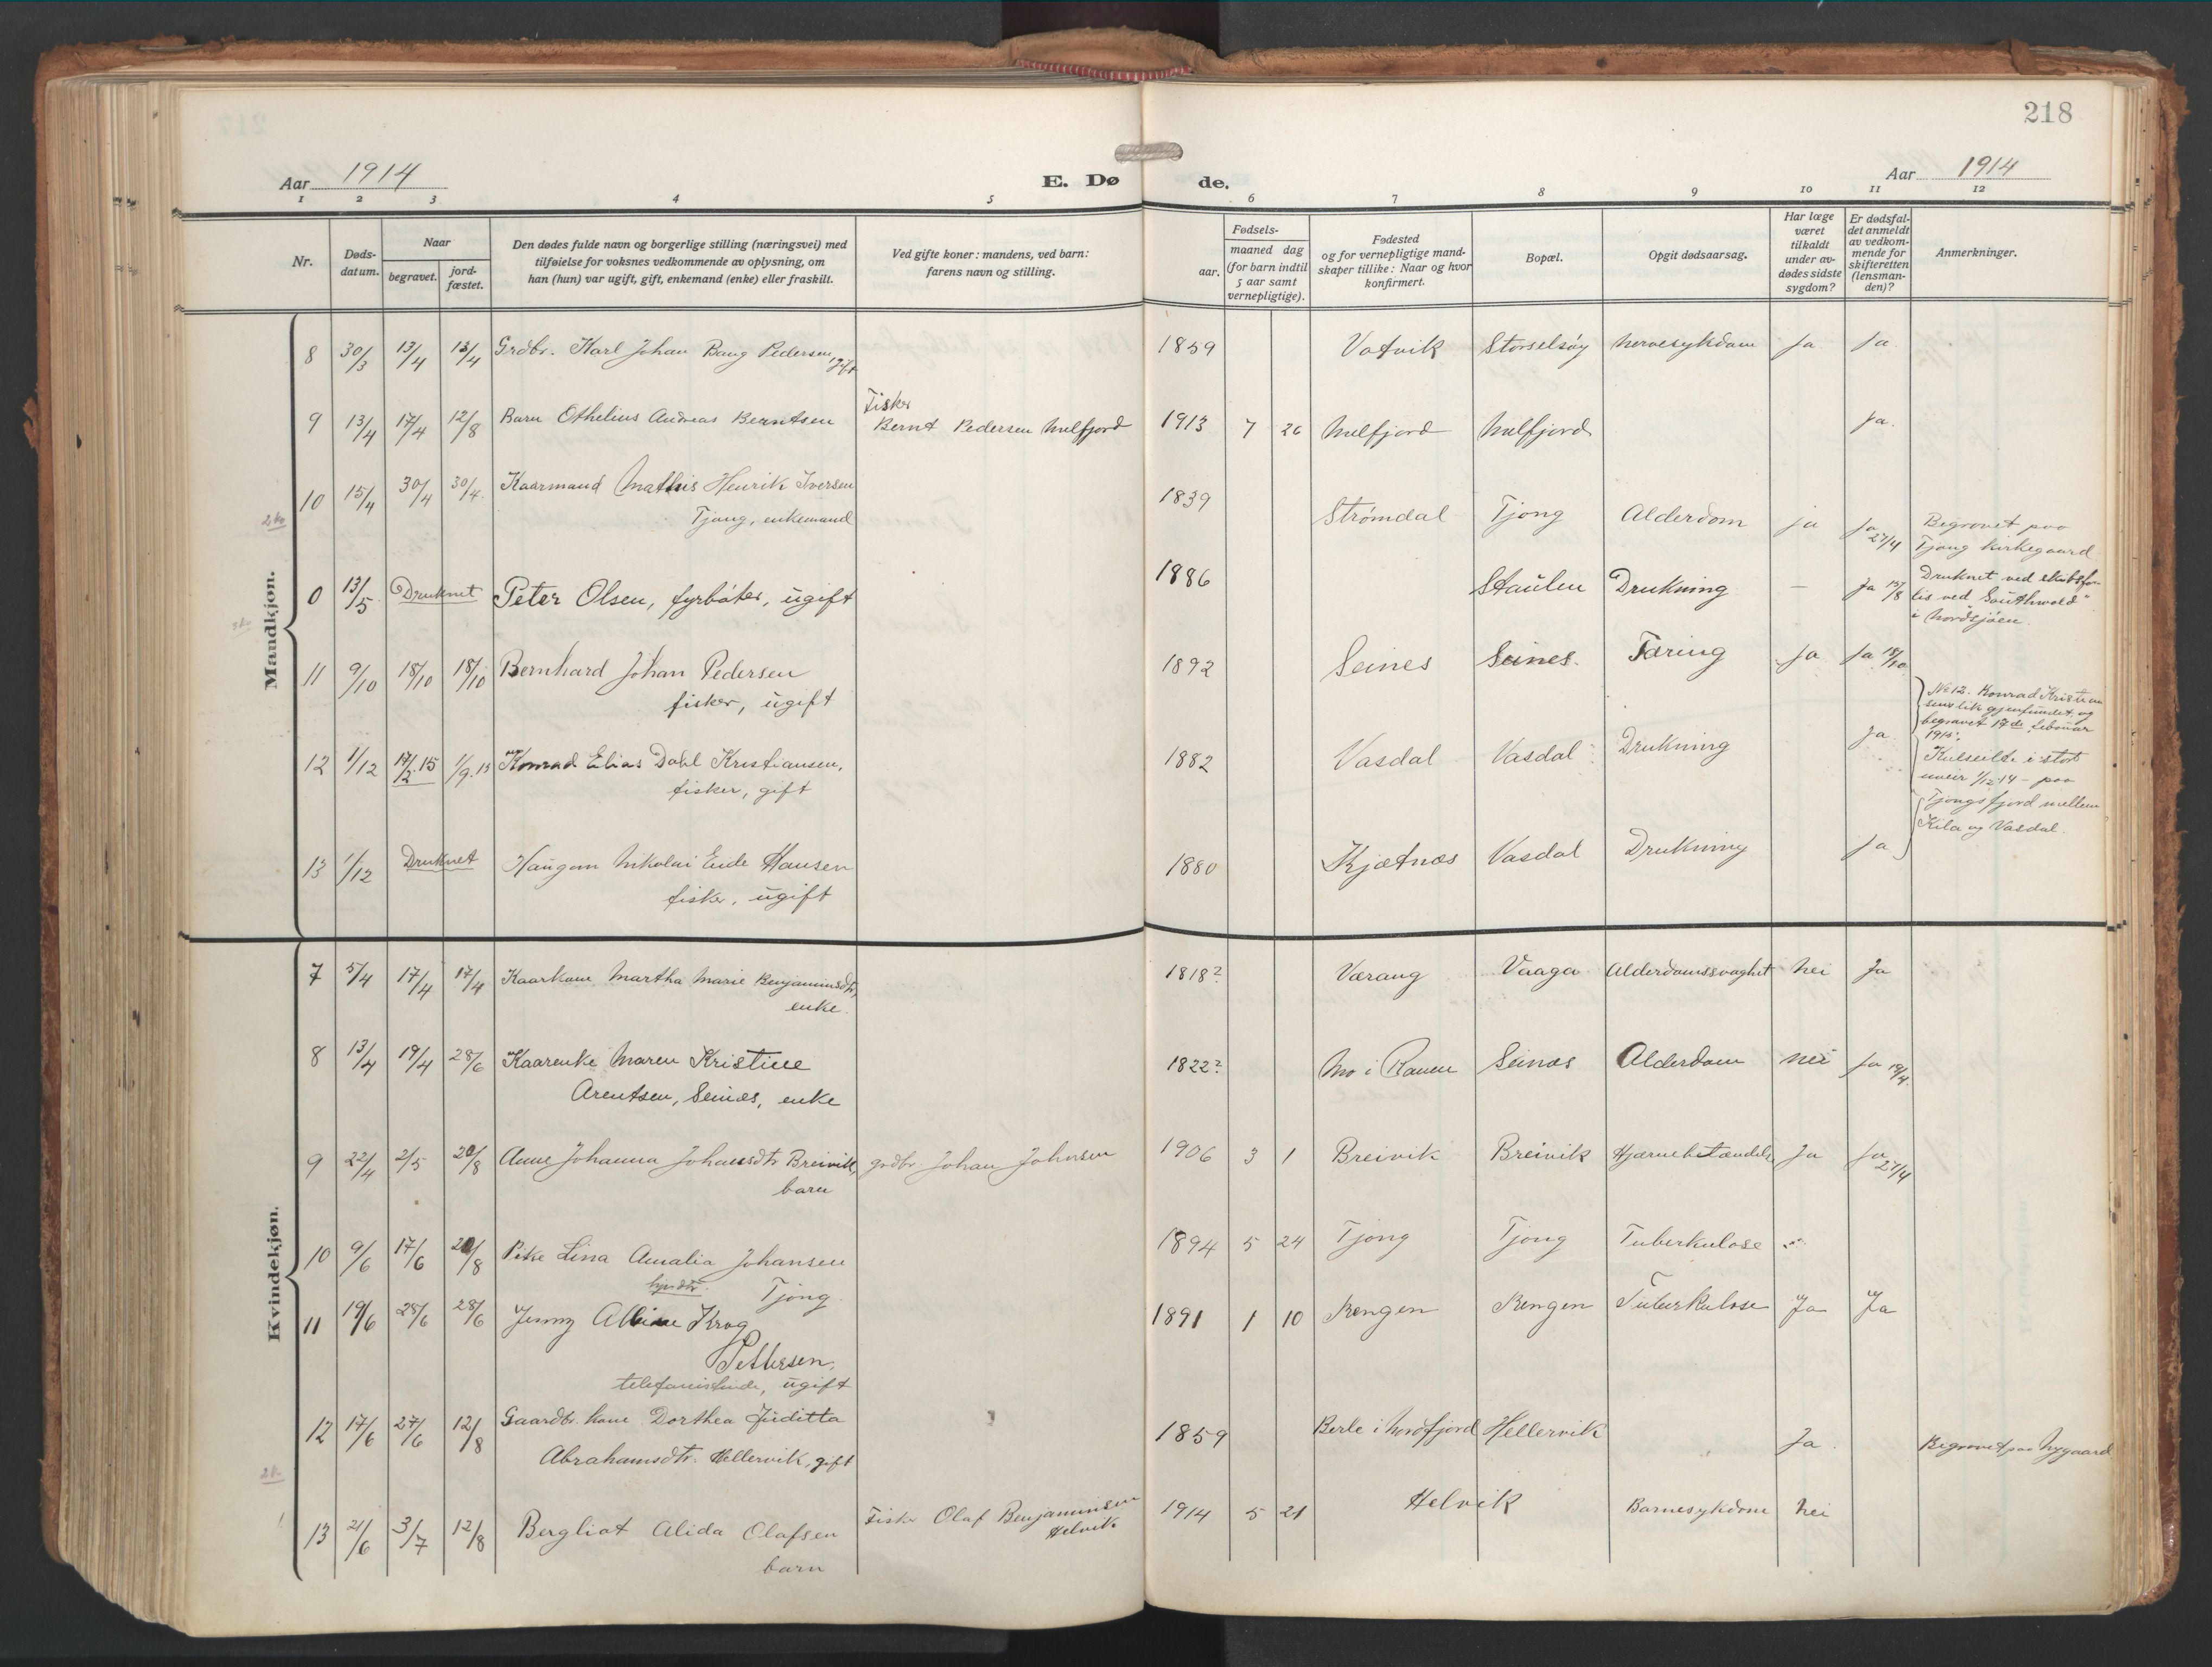 218
Aar 1914
E. Dø de.
Aar 1914
1 2 3 4 5 6 7 8 9 10 11 12
Nr.
Døds-
datum.
Naar
begravet.
jord-
fæstet.
Den dødes fulde navn og borgerlige stilling (næringsvei) med
tilføielse for voksnes vedkommende av oplysning, om
han (hun) var ugift, gift, enkemand (enke) eller fraskilt.
Ved gifte koner: mandens, ved barn:
farens navn og stilling.
Fødsels-
aar.
maaned dag
(for barn indtil
5 aar samt
vernepligtige).
Fødested
og for vernepligtige mand-
skaper tillike: Naar og hvor
konfirmert.
Bopæl.
Opgit dødsaarsag.
Har læge
været
tilkaldt
under av-
dødes sidste
sygdom?
Er dødsfal-
det anmeldt
av vedkom-
mende for
skifteretten
(lensman-
den)?
Anmerkninger.
Mandkjøn.
8 30/3 13/4 13/4 Grdbr. Karl Johan Bang Pedersen, gift 1859 Vatvik Storselsøy Nervesykdom Ja Ja
9 13/4 17/4 12/8 Barn Othelius Andreas Berntsen Fisker
Bernt Pedersen Melfjord 1913 7 26 Melfjord Melfjord Ja.
10 15/4 30/4 30/4 Kaarmand Mathis Henrik Iversen
Tjong, enkemand 1839 Strømdal Tjong Alderdom ja Ja 27/4 Begravet paa
Tjong kirkegaard
0 13/5 Druknet Peter Olsen, fyrbøter, ugift 1886 Staulen Drukning — Ja 15/8 Druknet ved skibsfor-
lis ved "Southwold"
i Nordsjøen.
11 9/10 18/10 18/10 Bernhard Johan Pedersen
fisker, ugift 1892 Seines Seines Tæring Ja Ja 18/10
12 1/12 17/2.15 1/9.15 Konrad Elias Dahl Kristiansen,
fisker, gift 1882 Vasdal Vasdal Drukning Ja
No 12. Konrad Kristian
sens lik gjenfundet og
begravet 17de februar
1915.
Kulseilte i stort
uveir 1/12 14 – paa
Tjongsfjord mellem
Kila og Vasdal.
13 1/12 Druknet Haugom Nikolai Eide Hansen
fisker, ugift 1880 Kjætnæs Vasdal Drukning Ja
Kvindekjøn.
7 5/4 17/4 17/4 Kaarkone Martha Marie Benjaminsdtr,
enke. 1818? Værang Vaaga Alderdomssvaghet nei Ja
8 13/4 19/4 28/6 Kaarenke Maren Kristine
Arentsen, Seinæs, enke 1822? Mo i Ranen Seinæs Alderdom nei Ja 19/4
9 22/4 2/5 20/8 Anne Johanna Johansdtr Breivik,
barn grdbr Johan Johnsen 1906 3 1 Breivik Breivik Hjærnebetændelse Ja Ja 27/4
10 9/6 17/6 20/8 Pike Lina Amalia Johansen
Tjong 1894 5 24 Tjong Tjong Tuberkulose
11 19/6 28/6 28/6 Jenny Albine Krog
Pettersen,
telefonistinde, ugift 1891 1 10 Rengen Rengen Tuberkulose Ja Ja
12 17/6 27/6 12/8 Gaardbr. kone Dorthea Juditta
Abrahamsdtr. Hellervik, gift 1859 Berle i Nordfjord Hellervik Ja. Begravet paa Nygaard
13 21/6 3/7 12/8 Bergliot Alida Olafsen
barn Fisker Olaf Benjaminsen
Helvik 1914 5 21 Helvik Barnesykdom nei